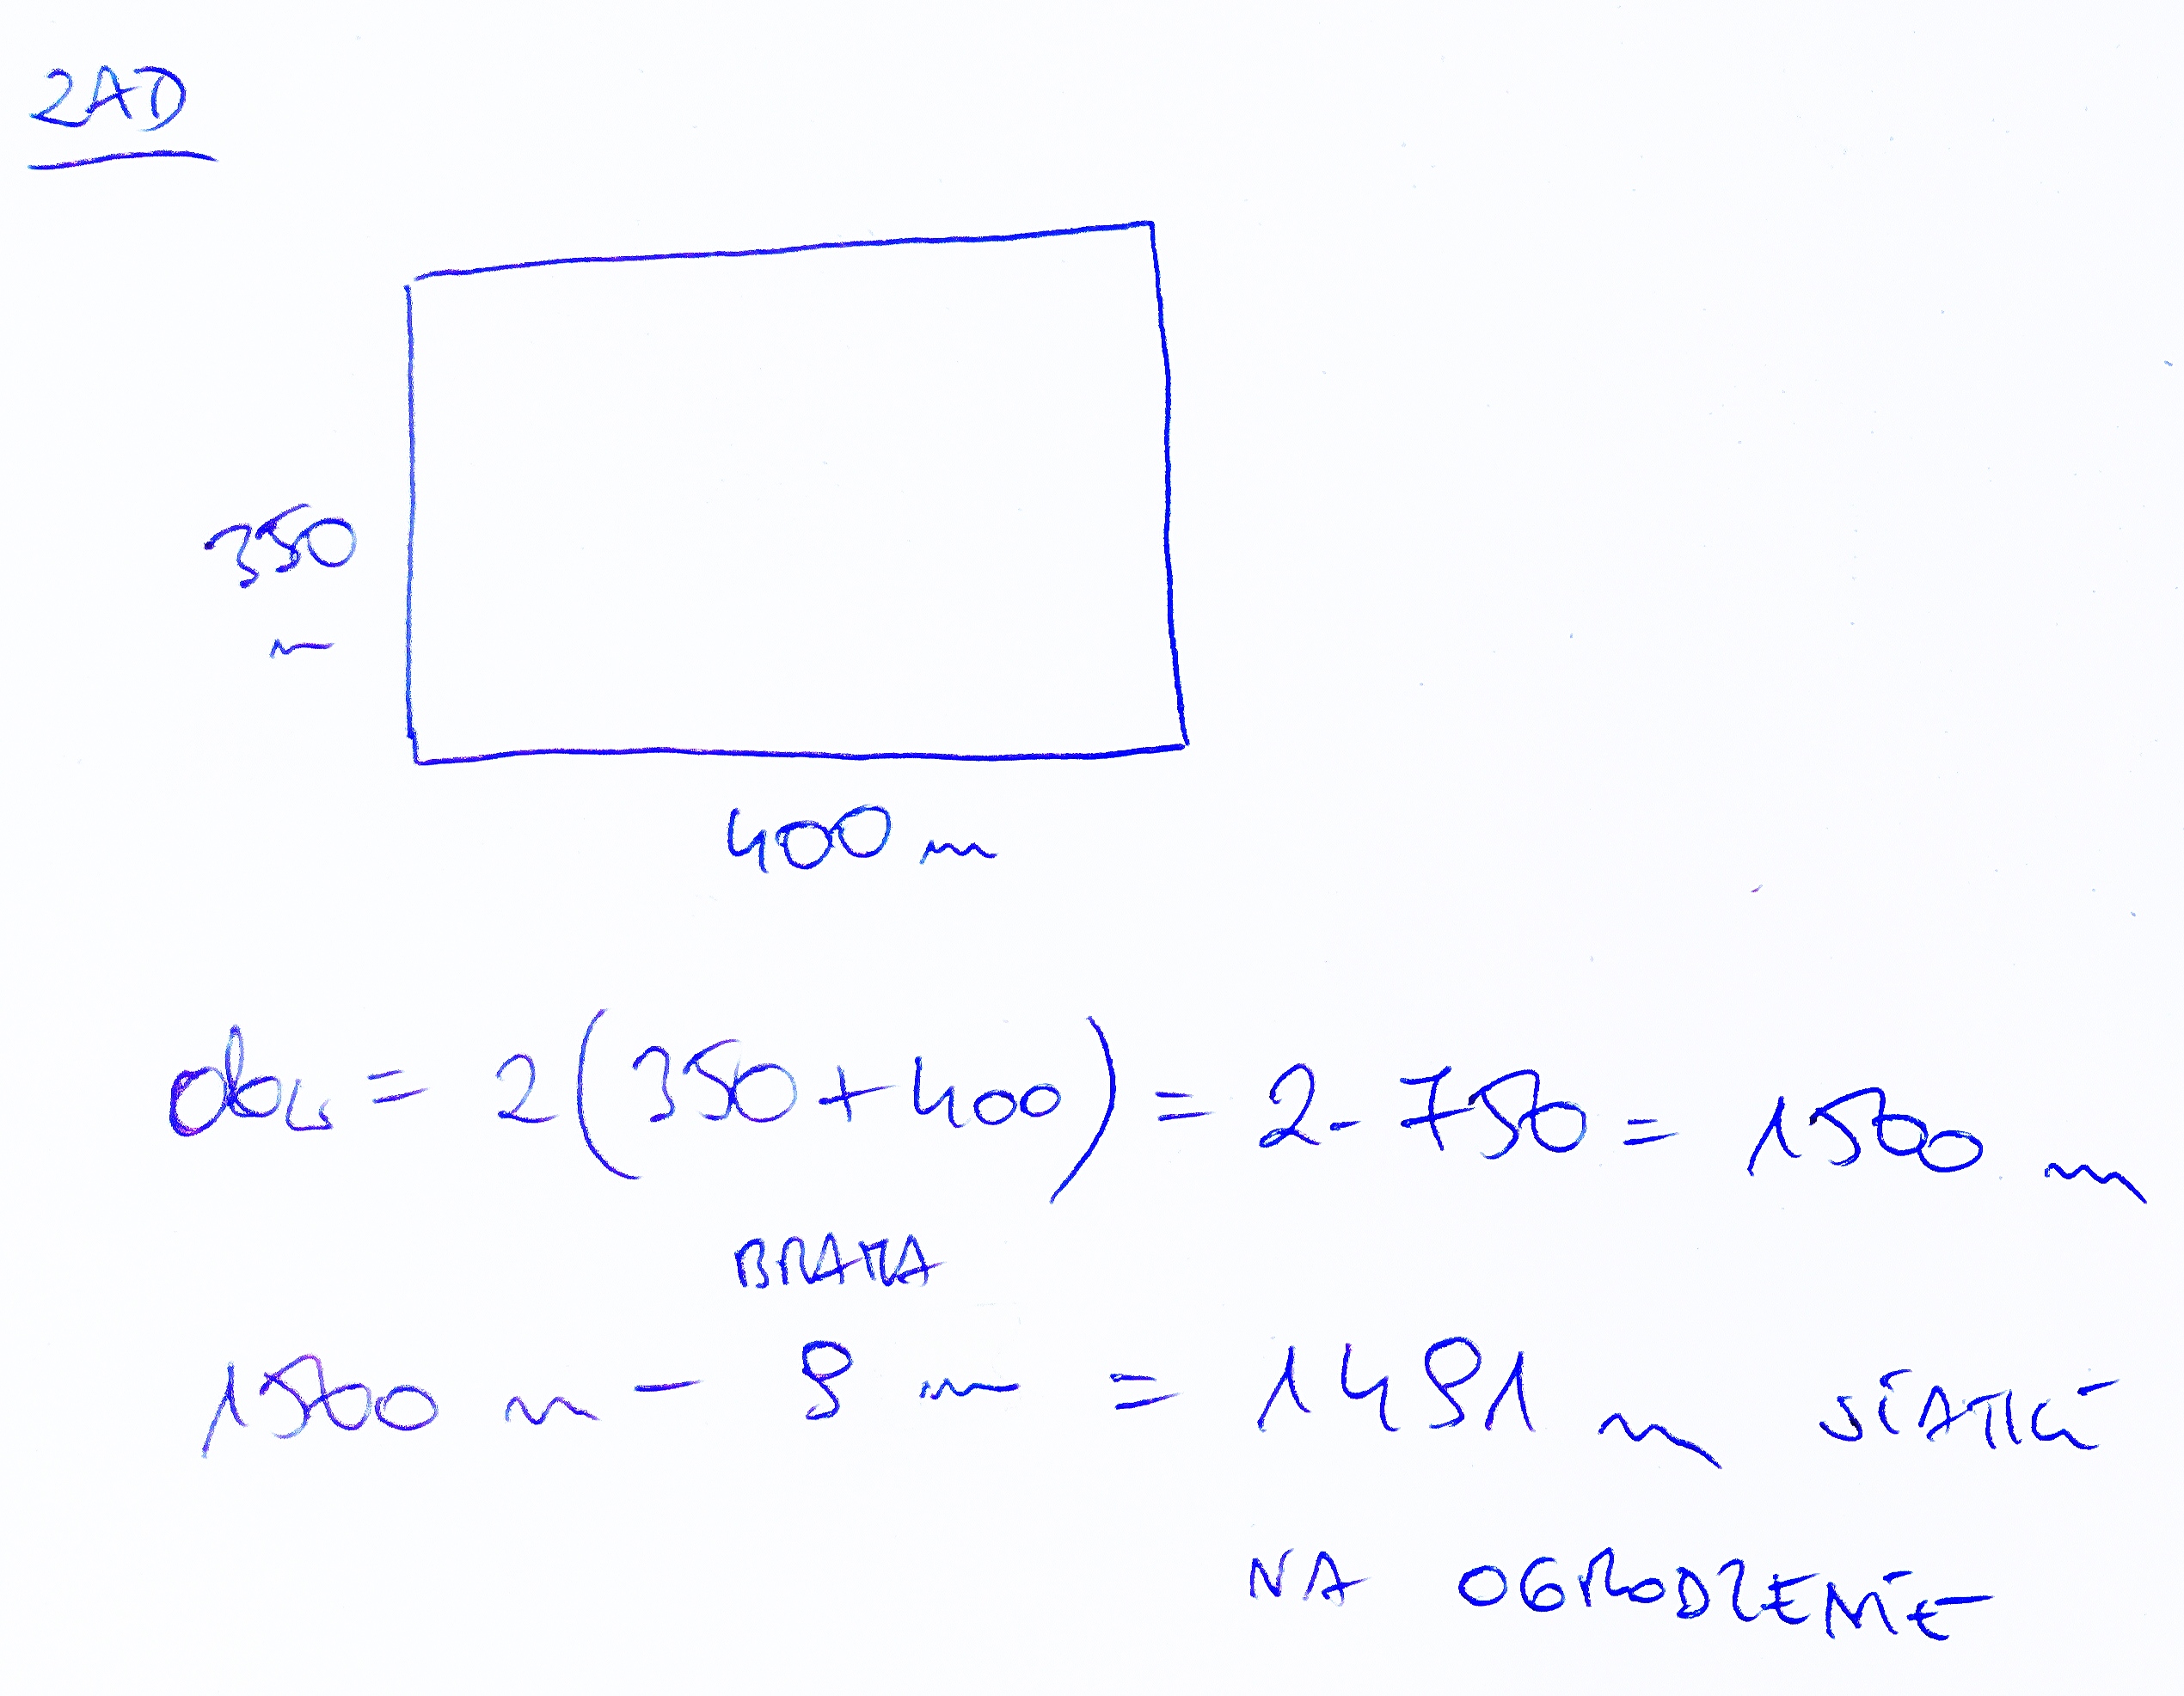 ZAD
350
m
400 m
obw = 2(350+400) = 2·750 = 1500 m
BRAMA
1500 m - 9 m = 1491 m SIATKI
NA OGRODZENIE